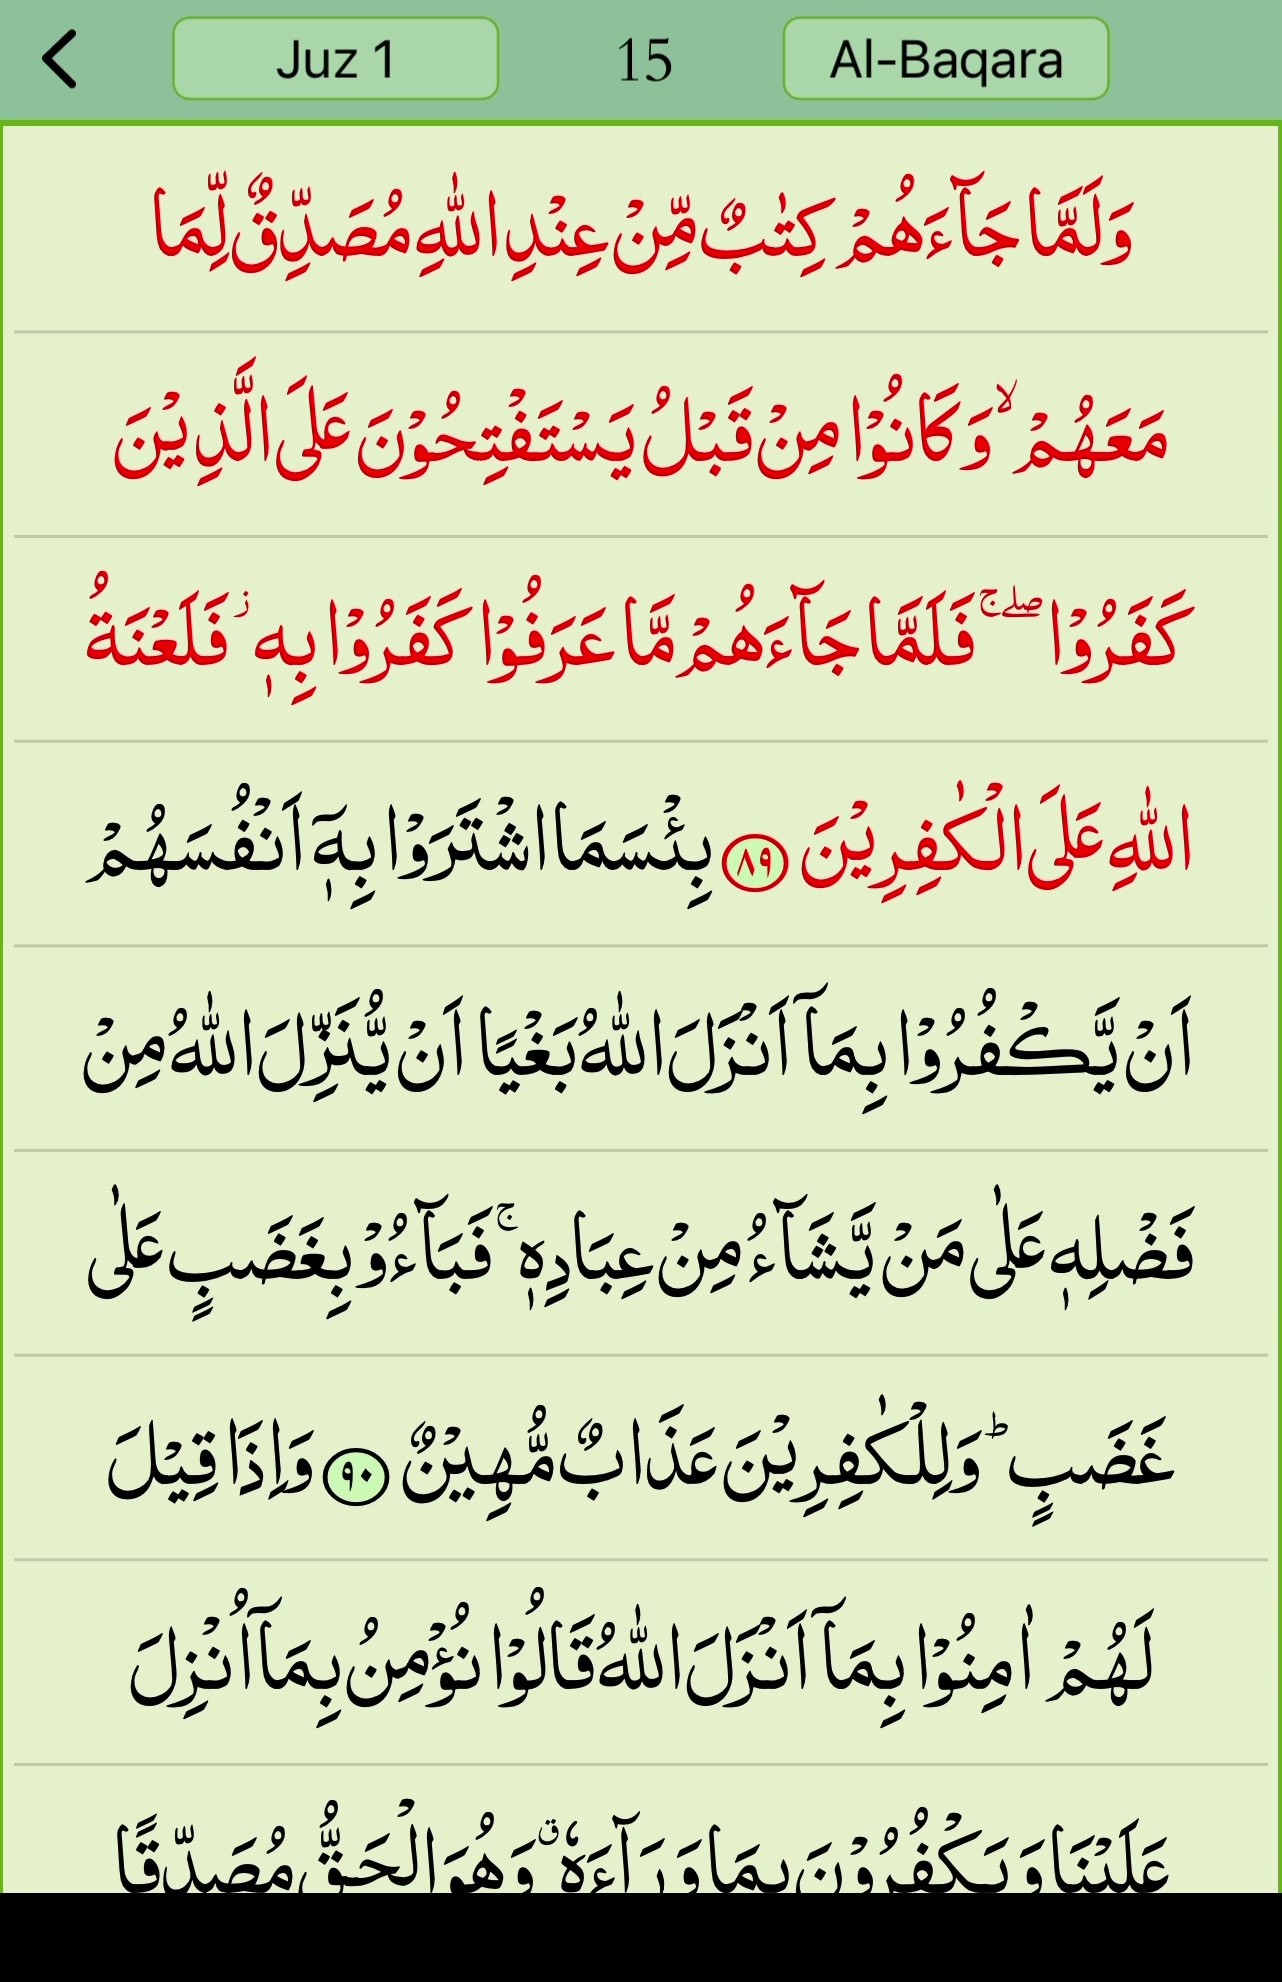 Juz 1 15 Al-Baqara
وَلَمَّا جَآءَهُمْ كِتٰبٌ مِّنْ عِنْدِ اللّٰهِ مُصَدِّقٌ لِّمَا
مَعَهُمْ ۙ وَكَانُوْا مِنْ قَبْلُ يَسْتَفْتِحُوْنَ عَلَى الَّذِيْنَ
كَفَرُوْا ۖۚ فَلَمَّا جَآءَهُمْ مَّا عَرَفُوْا كَفَرُوْا بِهٖ ؗ فَلَعْنَةُ
اللّٰهِ عَلَى الْكٰفِرِيْنَ ٨٩ بِئْسَمَا اشْتَرَوْا بِهٖٓ اَنْفُسَهُمْ
اَنْ يَّكْفُرُوْا بِمَآ اَنْزَلَ اللّٰهُ بَغْيًا اَنْ يُّنَزِّلَ اللّٰهُ مِنْ
فَضْلِهٖ عَلٰى مَنْ يَّشَآءُ مِنْ عِبَادِهٖ ۚ فَبَآءُوْ بِغَضَبٍ عَلٰى
غَضَبٍ ؕ وَلِلْكٰفِرِيْنَ عَذَابٌ مُّهِيْنٌ ٩٠ وَاِذَا قِيْلَ
لَهُمْ اٰمِنُوْا بِمَآ اَنْزَلَ اللّٰهُ قَالُوْا نُؤْمِنُ بِمَآ اُنْزِلَ
عَلَيْنَا وَيَكْفُرُوْنَ بِمَا وَرَآءَهٗ ۗ وَهُوَ الْحَقُّ مُصَدِّقًا